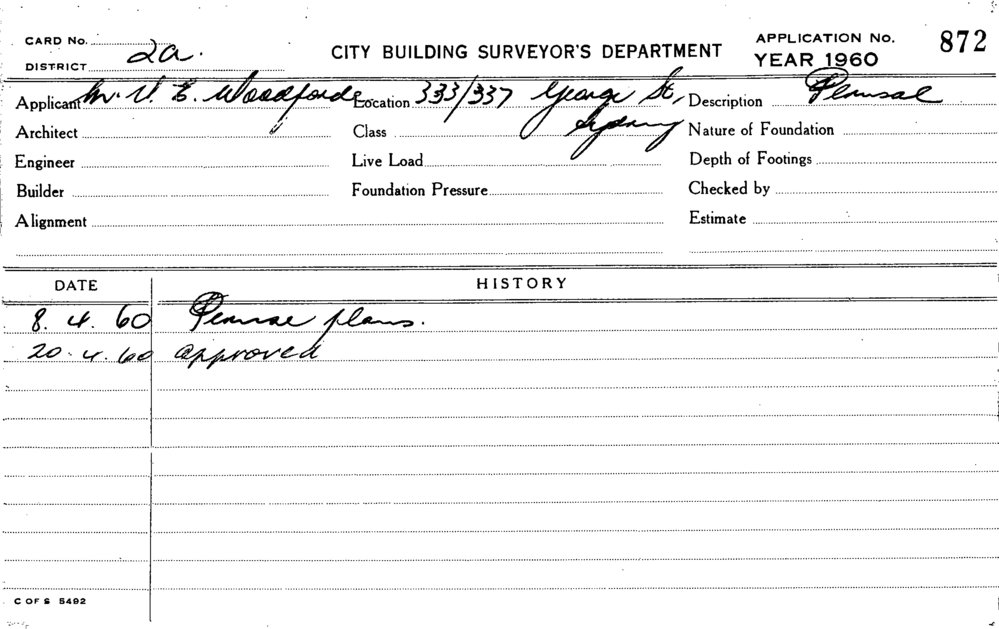 CARD No.
DISTRICT 2a.
CITY BUILDING SURVEYOR'S DEPARTMENT
APPLICATION No. 872
YEAR 1960
Applicant Mr. V. E. Woodforde Location 333/337 George St, Sydney Description Perusal
Architect Class Nature of Foundation
Engineer Live Load Depth of Footings
Builder Foundation Pressure Checked by
Alignment Estimate
DATE HISTORY
8. 4. 60 Peruse plans.
20. 4. 60 approved
C OF S 5492